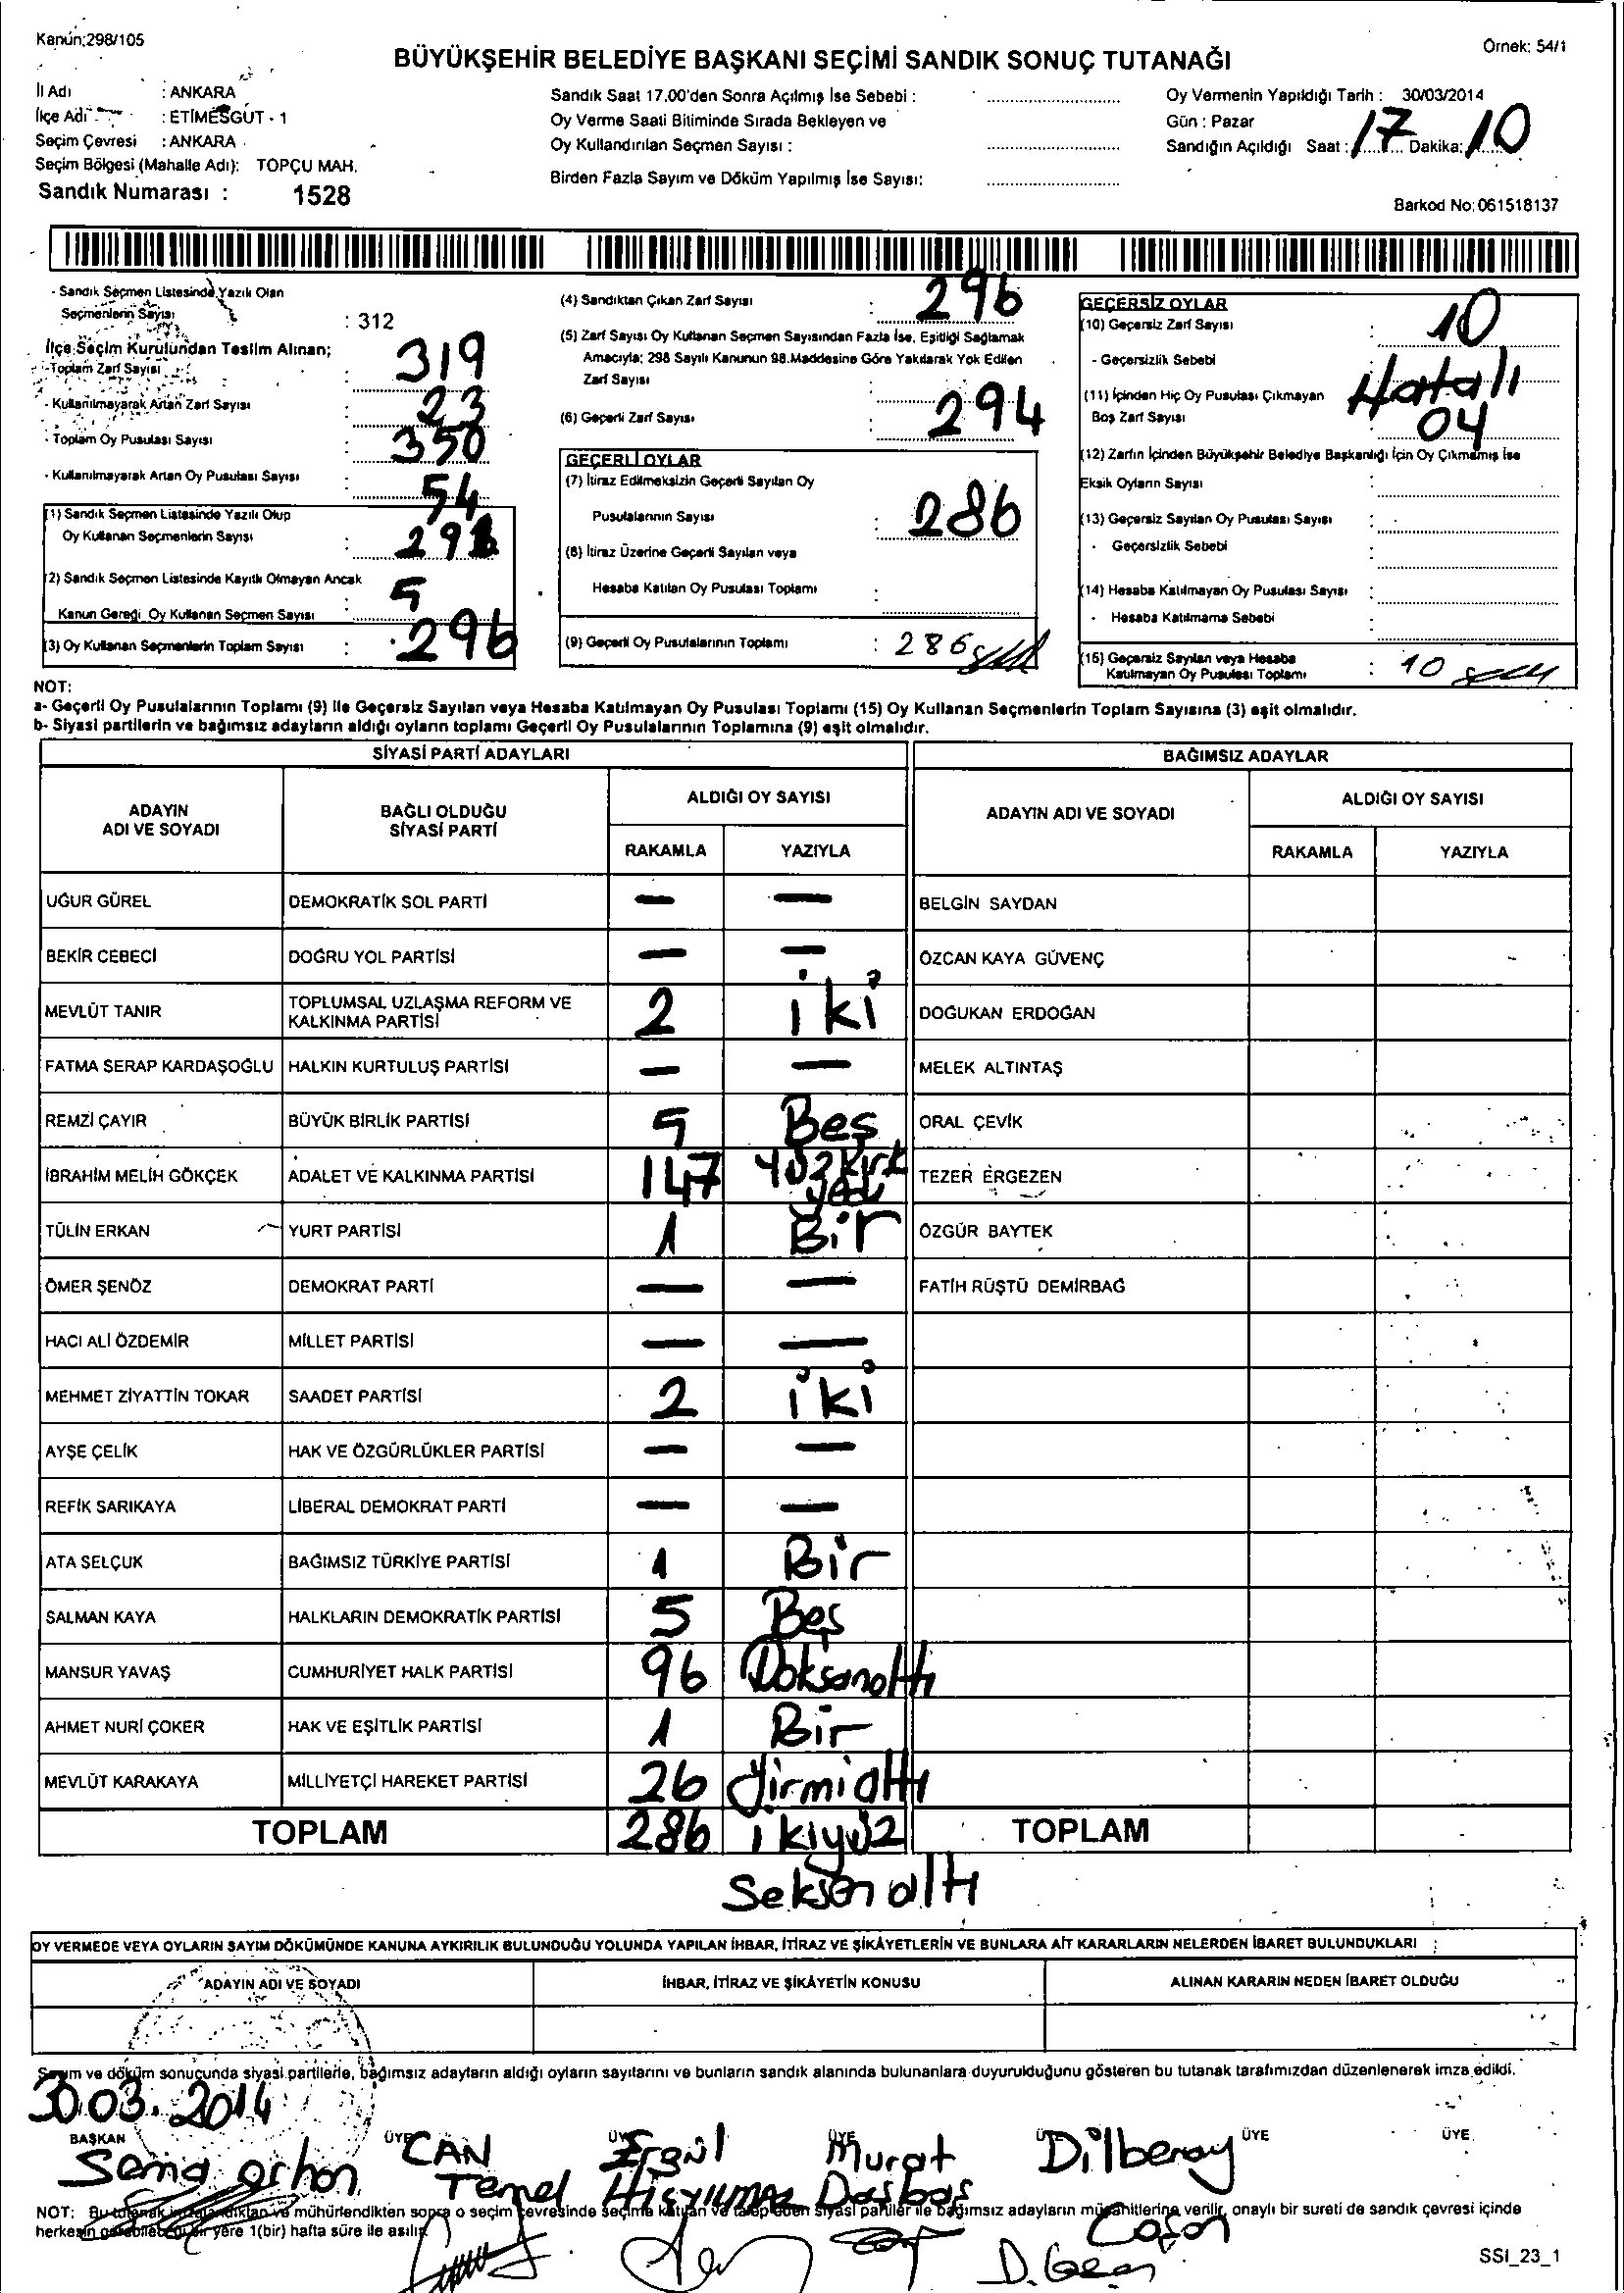 Kanun:298/105
Örnek: 54/1
BÜYÜKŞEHİR BELEDİYE BAŞKANI SEÇİMİ SANDIK SONUÇ TUTANAĞI
İl Adı : ANKARA
İlçe Adı : ETİMESGUT - 1
Seçim Çevresi : ANKARA
Seçim Bölgesi (Mahalle Adı): TOPÇU MAH.
Sandık Numarası : 1528
Sandık Saat 17.00'den Sonra Açılmış İse Sebebi :
Oy Verme Saati Bitiminde Sırada Bekleyen ve
Oy Kullandırılan Seçmen Sayısı :
Birden Fazla Sayım ve Döküm Yapılmış İse Sayısı:
Oy Vermenin Yapıldığı Tarih : 30/03/2014
Gün : Pazar
Sandığın Açıldığı Saat : 17 Dakika: 10
Barkod No: 061518137
- Sandık Seçmen Listesinde Yazılı Olan
Seçmenlerin Sayısı : 312
İlçe Seçim Kurulundan Teslim Alınan;
- Toplam Zarf Sayısı : 319
- Kullanılmayarak Artan Zarf Sayısı : 23
- Toplam Oy Pusulası Sayısı : 350
- Kullanılmayarak Artan Oy Pusulası Sayısı : 54
(1) Sandık Seçmen Listesinde Yazılı Olup
Oy Kullanan Seçmenlerin Sayısı :
(2) Sandık Seçmen Listesinde Kayıtlı Olmayan Ancak
Kanun Gereği Oy Kullanan Seçmen Sayısı : 5
(3) Oy Kullanan Seçmenlerin Toplam Sayısı : 296
(4) Sandıktan Çıkan Zarf Sayısı : 296
(5) Zarf Sayısı Oy Kullanan Seçmen Sayısından Fazla İse, Eşitliği Sağlamak
Amacıyla; 298 Sayılı Kanunun 98.Maddesine Göre Yakılarak Yok Edilen
Zarf Sayısı :
(6) Geçerli Zarf Sayısı : 294
GEÇERLİ OYLAR
(7) İtiraz Edilmeksizin Geçerli Sayılan Oy
Pusulalarının Sayısı : 286
(8) İtiraz Üzerine Geçerli Sayılan veya
Hesaba Katılan Oy Pusulası Toplamı :
(9) Geçerli Oy Pusulalarının Toplamı : 286
GEÇERSİZ OYLAR
(10) Geçersiz Zarf Sayısı : 10
- Geçersizlik Sebebi : Hatalı
(11) İçinden Hiç Oy Pusulası Çıkmayan
Boş Zarf Sayısı : 04
(12) Zarfın İçinden Büyükşehir Belediye Başkanlığı İçin Oy Çıkmamış İse
Eksik Oyların Sayısı :
(13) Geçersiz Sayılan Oy Pusulası Sayısı :
- Geçersizlik Sebebi :
(14) Hesaba Katılmayan Oy Pusulası Sayısı :
- Hesaba Katılmama Sebebi :
(15) Geçersiz Sayılan veya Hesaba
Katılmayan Oy Pusulası Toplamı : 10
NOT:
a- Geçerli Oy Pusulalarının Toplamı (9) ile Geçersiz Sayılan veya Hesaba Katılmayan Oy Pusulası Toplamı (15) Oy Kullanan Seçmenlerin Toplam Sayısına (3) eşit olmalıdır.
b- Siyasi partilerin ve bağımsız adayların aldığı oyların toplamı Geçerli Oy Pusulalarının Toplamına (9) eşit olmalıdır.
SİYASİ PARTİ ADAYLARI BAĞIMSIZ ADAYLAR
ADAYIN ADI VE SOYADI BAĞLI OLDUĞU SİYASİ PARTİ ALDIĞI OY SAYISI ADAYIN ADI VE SOYADI ALDIĞI OY SAYISI
RAKAMLA YAZIYLA RAKAMLA YAZIYLA
UĞUR GÜREL DEMOKRATİK SOL PARTİ — — BELGİN SAYDAN
BEKİR CEBECİ DOĞRU YOL PARTİSİ — — ÖZCAN KAYA GÜVENÇ
MEVLÜT TANIR TOPLUMSAL UZLAŞMA REFORM VE KALKINMA PARTİSİ 2 iki DOĞUKAN ERDOĞAN
FATMA SERAP KARDAŞOĞLU HALKIN KURTULUŞ PARTİSİ — — MELEK ALTINTAŞ
REMZİ ÇAYIR BÜYÜK BİRLİK PARTİSİ 5 Beş ORAL ÇEVİK
İBRAHİM MELİH GÖKÇEK ADALET VE KALKINMA PARTİSİ 147 Yüzkırk yedi TEZER ERGEZEN
TÜLİN ERKAN YURT PARTİSİ 1 Bir ÖZGÜR BAYTEK
ÖMER ŞENÖZ DEMOKRAT PARTİ — — FATİH RÜŞTÜ DEMİRBAĞ
HACI ALİ ÖZDEMİR MİLLET PARTİSİ — —
MEHMET ZİYATTİN TOKAR SAADET PARTİSİ 2 iki
AYŞE ÇELİK HAK VE ÖZGÜRLÜKLER PARTİSİ — —
REFİK SARIKAYA LİBERAL DEMOKRAT PARTİ — —
ATA SELÇUK BAĞIMSIZ TÜRKİYE PARTİSİ 1 Bir
SALMAN KAYA HALKLARIN DEMOKRATİK PARTİSİ 5 Beş
MANSUR YAVAŞ CUMHURİYET HALK PARTİSİ 96 Doksanaltı
AHMET NURİ ÇOKER HAK VE EŞİTLİK PARTİSİ 1 Bir
MEVLÜT KARAKAYA MİLLİYETÇİ HAREKET PARTİSİ 26 Yirmialtı
TOPLAM 286 ikiyüz TOPLAM
Seksen altı
OY VERMEDE VEYA OYLARIN SAYIM DÖKÜMÜNDE KANUNA AYKIRILIK BULUNDUĞU YOLUNDA YAPILAN İHBAR, İTİRAZ VE ŞİKÂYETLERİN VE BUNLARA AİT KARARLARIN NELERDEN İBARET BULUNDUKLARI
ADAYIN ADI VE SOYADI İHBAR, İTİRAZ VE ŞİKÂYETİN KONUSU ALINAN KARARIN NEDEN İBARET OLDUĞU
Sayım ve döküm sonucunda siyasi partilerle, bağımsız adayların aldığı oyların sayılarını ve bunların sandık alanında bulunanlara duyurulduğunu gösteren bu tutanak tarafımızdan düzenlenerek imza edildi.
30.03.2014
BAŞKAN ÜYE ÜYE ÜYE ÜYE ÜYE ÜYE
CAN Ergül Murat Dilberay
Sema Temel
NOT: Bu tutanak mühürlendikten sonra o seçim çevresinde seçime katılan ve talep eden siyasi partiler ile bağımsız adayların müşahitlerine verilir, onaylı bir sureti de sandık çevresi içinde
herkesin görebileceği bir yere 1(bir) hafta süre ile asılır.
SSI_23_1